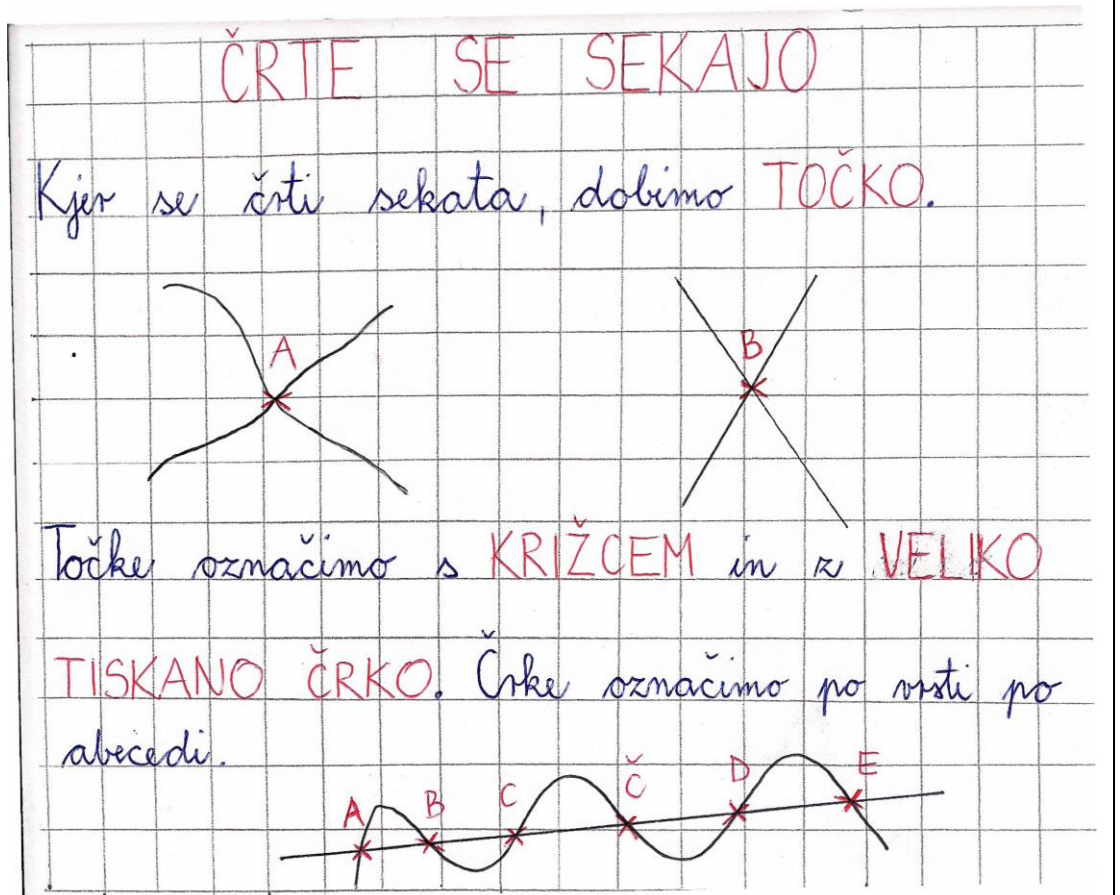 ČRTE SE SEKAJO
Kjer se črti sekata, dobimo TOČKO.
A B
Točke označimo s KRIŽCEM in z VELIKO
TISKANO ČRKO. Črke označimo po vrsti po
abecedi.
A B C Č D E